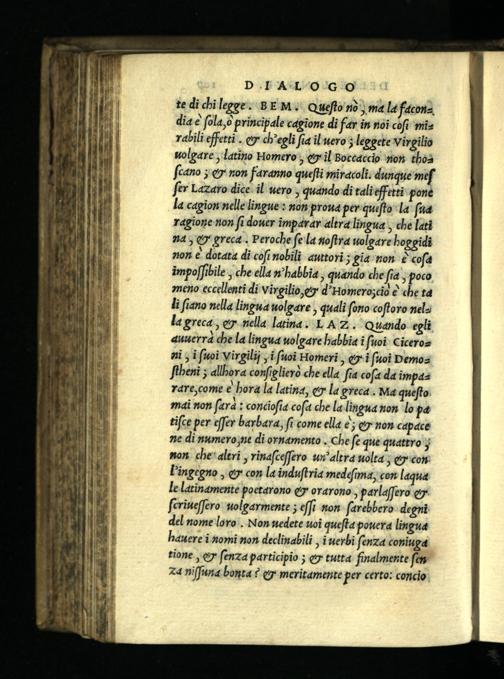 DIALOGO
te di chi legge. BEM. Questo nò, ma la facon=
dia è sola, ò principale cagione di far in noi cosi mi=
rabili effetti. & ch'egli sia il uero; leggete Virgilio
uolgare, latino Homero, & il Boccaccio non tho=
scano; & non faranno questi miracoli. dunque mes
ser Lazaro dice il uero, quando di tali effetti pone
la cagion nelle lingue: non proua per questo la sua
ragione non si douer imparar altra lingua, che lati
na, & greca. Peroche se la nostra uolgare hoggidi
non è dotata di cosi nobili auttori; gia non è cosa
impossibile, che ella n'habbia, quando che sia, poco
meno eccellenti di Virgilio, & d'Homero; ciò è che ta
li siano nella lingua uolgare, quali sono costoro nel=
la greca, & nella latina. LAZ. Quando egli
auuerrà che la lingua uolgare habbia i suoi Cicero=
ni, i suoi Virgilij, i suoi Homeri, & i suoi Demo=
stheni; allhora consiglierò che ella sia cosa da impa=
rare, come è hora la latina, & la greca. Ma questo
mai non sarà: conciosia cosa che la lingua non lo pa
tisce per esser barbara, si come ella è; & non capace
ne di numero, ne di ornamento. Che se que quattro,
non che altri, rinascessero un'altra uolta, & con
l'ingegno, & con la industria medesima, con laqua
le latinamente poetarono & orarono, parlassero &
scriuessero uolgarmente; essi non sarebbero degni
del nome loro. Non uedete uoi questa pouera lingua
hauere i nomi non declinabili, i uerbi senza coniuga
tione, & senza participio; & tutta finalmente sen
za nissuna bonta? & meritamente per certo: concio